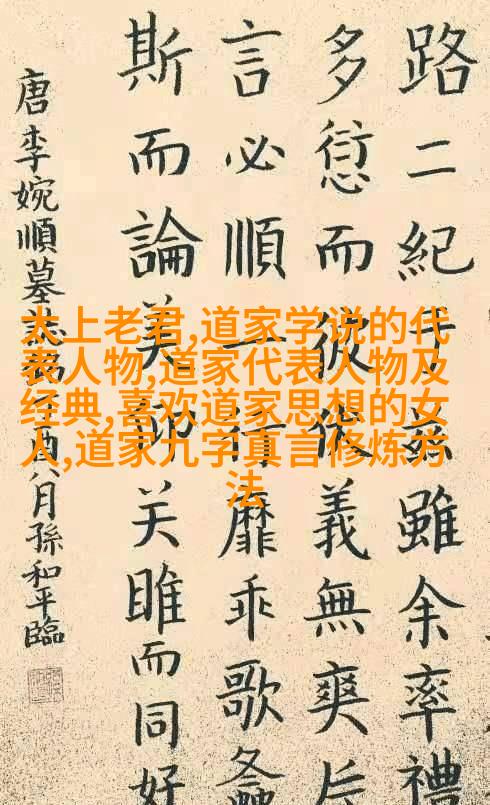 路二紀于兹雖余率禮
多愆而彼後義無爽
言必順一行靡乖歌
斯而論美即关雎而同好
唐李婉順墓誌酉八月孫和平臨
太上老君,道家学说的代
表人物,道家代表人物及
经典,喜欢道家思想的女
人,道家九字真言修炼方
法